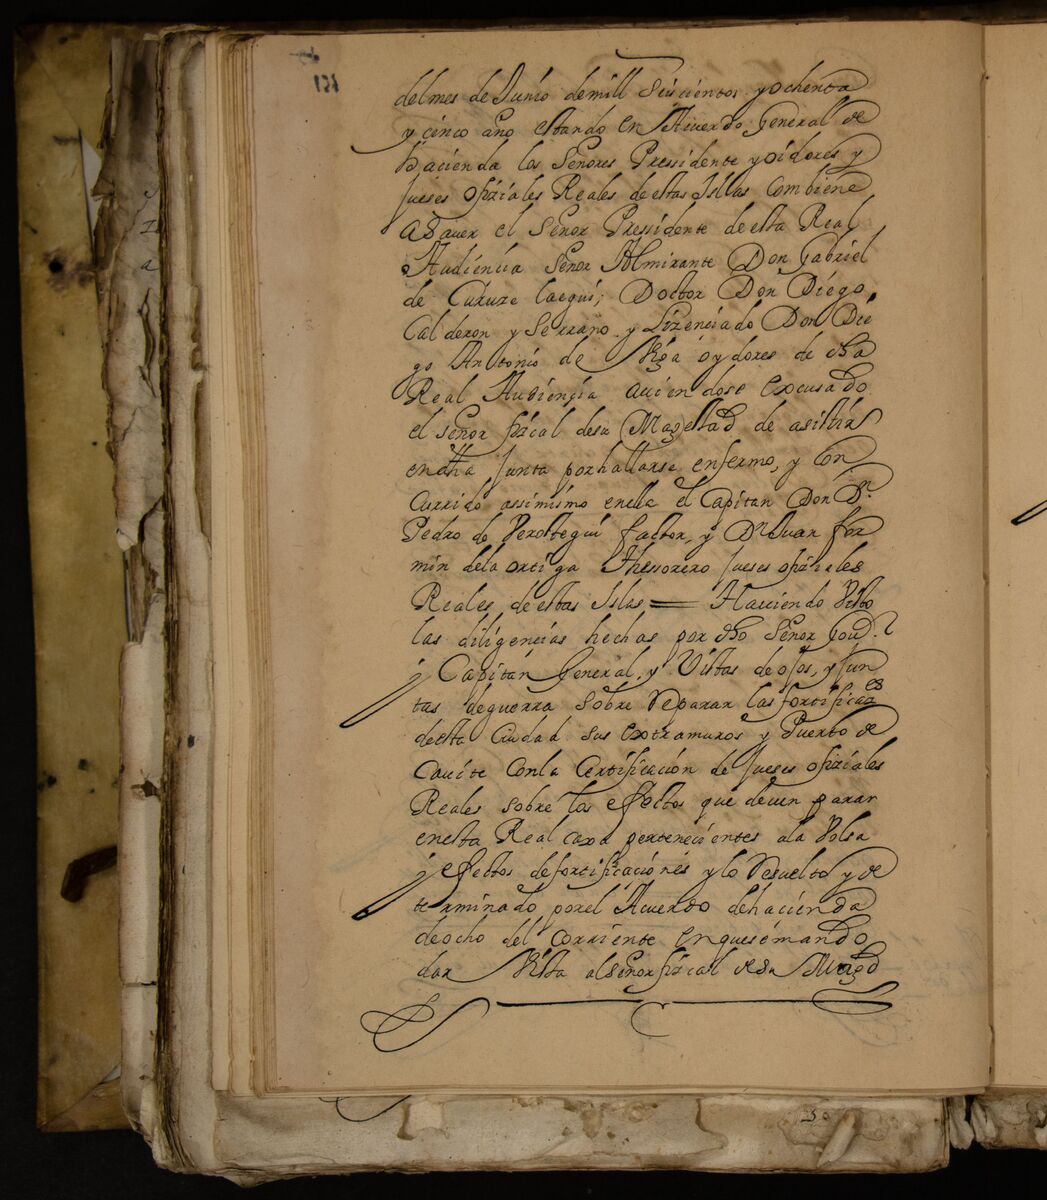 121
del mes de Junio demill seiscientos yochenta
y cinco año estando en Acuerdo General de
hacienda los Señores Pressidente y oidores y
Jueses ofiziales Reales de estas Islas Combiene
asauer el Señor Pressidente deesta Real
Audiencia Señor Almirante Don Gabriel
de Curuze laegui; Doctor Don Diego
Calderon y Serrano y Lizenciado Don Die
go Antonio de Viga oydores de dha
Real Audiençia auiendose excusado
el señor fizcal desu Magestad de asistir
endha Junta porhallarse enfermo, y Con
Currido assimismo enella el Capitan Don
Pedro de Verastegui factor, y Dn Juan fer
min dela ortiga Thessorero Jueses ofiziales
Reales de estas Islas = Hauiendo Visto
las diligencias hechas por dho Señor Gour
y Capitan General, y Vistas de ojos, y Jun
tas deguerra sobre Reparar las fortificaes
deesta Ciudad sus extramuros y Puerto de
Cauite Conla Certificacion de Jueses ofiziales
Reales sobre los efectos que deuen parar
enesta Real caxa pertenecientes ala Volsa
y efectos defortificaciones y lo Resuelto y de
terminado porel Acuerdo dehacienda
deocho del Corriente enquesemando
dar Vista alSeñor fizcal desu Magd